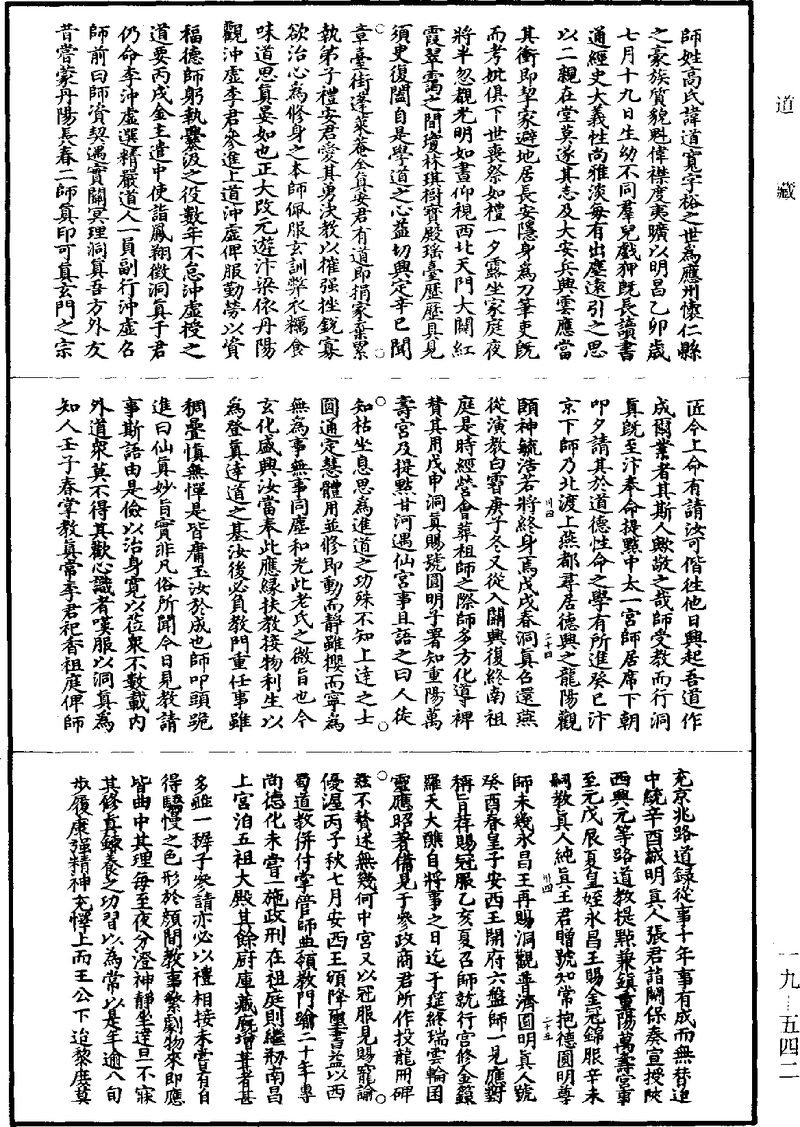 道藏
師姓高氏諱道寬字裕之世為應州懷仁縣
之豪族質貌魁偉襟度夷曠以明昌乙卯歲
七月十九日生幼不同羣兒戲狎既長讀書
通經史大義性尚雅淡每有出塵遠引之思
以二親在堂莫遂其志及大安兵興雲應當
其衝即挈家避地居長安隱身為刀筆吏既
而考妣俱下世喪祭如禮一夕露坐家庭夜
將半忽覩光明如晝仰視西北天門大開紅
霞翠靄之間瓊林琪樹寶殿瑤臺歷歷具見
須臾復闔自是學道之心益切興定辛巳聞
章臺街蓬萊庵全真安君有道即捐家棄累
執弟子禮安君愛其勇決教以摧强挫銳寡
欲治心為修身之本師佩服玄訓弊衣糲食
味道思真晏如也正大改元遊汴梁依丹陽
觀沖虛李君參進上道沖虛俾服勤勞以資
福德師躬執爨汲之役數年不怠沖虛授之
道要丙戌金主遣中使詣鳳翔徵洞真于君
仍命李沖虛選精嚴道人一員副行沖虛召
師前曰師資契遇實關冥理洞真吾方外友
昔嘗蒙丹陽長春二師真印可真玄門之宗
匠今上命有請汝可偕往他日興起吾道作
成爾業者其斯人歟敬之哉師受教而行洞
真既至汴奉命提點中太一宮師居席下朝
叩夕請其於道德性命之學有所進癸巳汴
京下師乃北渡上燕都尋居德興之龍陽觀
頤神毓浩若將終身焉戊戌春洞真召還燕
從演教白霫庚子冬又從入關興復終南祖
庭是時經營會葬祖師之際師多方化導裨
贊其用戊申洞真賜號圓明子署知重陽萬
壽宮及提點甘河遇仙宮事且語之曰人徒
知枯坐息思為進道之功殊不知上達之士
圓通定慧體用並修即動而靜雖攖而寧為
無為事無事同塵和光此老氏之微旨也今
玄化盛興汝當奉此應緣扶教接物利生以
為登真達道之基汝後必負教門重任事雖
稠疊慎無憚是皆庸玉汝於成也師叩頭跪
進曰仙真妙旨實非凡俗所聞今日見教請
事斯語由是儉以治身寬以莅衆不數載內
外道衆莫不得其歡心識者嘆服以洞真為
知人壬子春掌教真常李君祀香祖庭俾師
充京兆路道録從事十年事有成而無替迨
中統辛酉誠明真人張君詣闕保奏宣授陝
西興元等路道教提點兼鎮重陽萬壽宮事
至元戊辰夏皇姪永昌王賜金冠錦服辛未
嗣教真人純真王君贈號知常抱德圓明尊
師未幾永昌王再賜洞觀普濟圓明真人號
癸酉春皇子安西王開府六盤師一見應對
稱旨荐賜冠服乙亥夏召師就行宮修金籙
羅天大醮自將事之日迄于筵終瑞雲輪囷
靈應昭著備見于參政商君所作投龍冊碑
茲不贅述無幾何中宮又以冠服見賜寵諭
優渥丙子秋七月安西王頒降璽書益以西
蜀道教併付掌管師典領教門踰二十年專
尚德化未嘗一施政刑在祖庭則繼剏南昌
上宮洎五祖大殿其餘廚庫藏廐增葺者甚
多雖一稺子參請亦必以禮相接未嘗有自
得驕慢之色形於顏間教事繁劇物來即應
皆曲中其理每至夜分澄神靜坐達旦不寐
其修真錬養之功習以為常以是年逾八旬
步履康强精神充懌上而王公下迨黎庶莫
一九—五四二